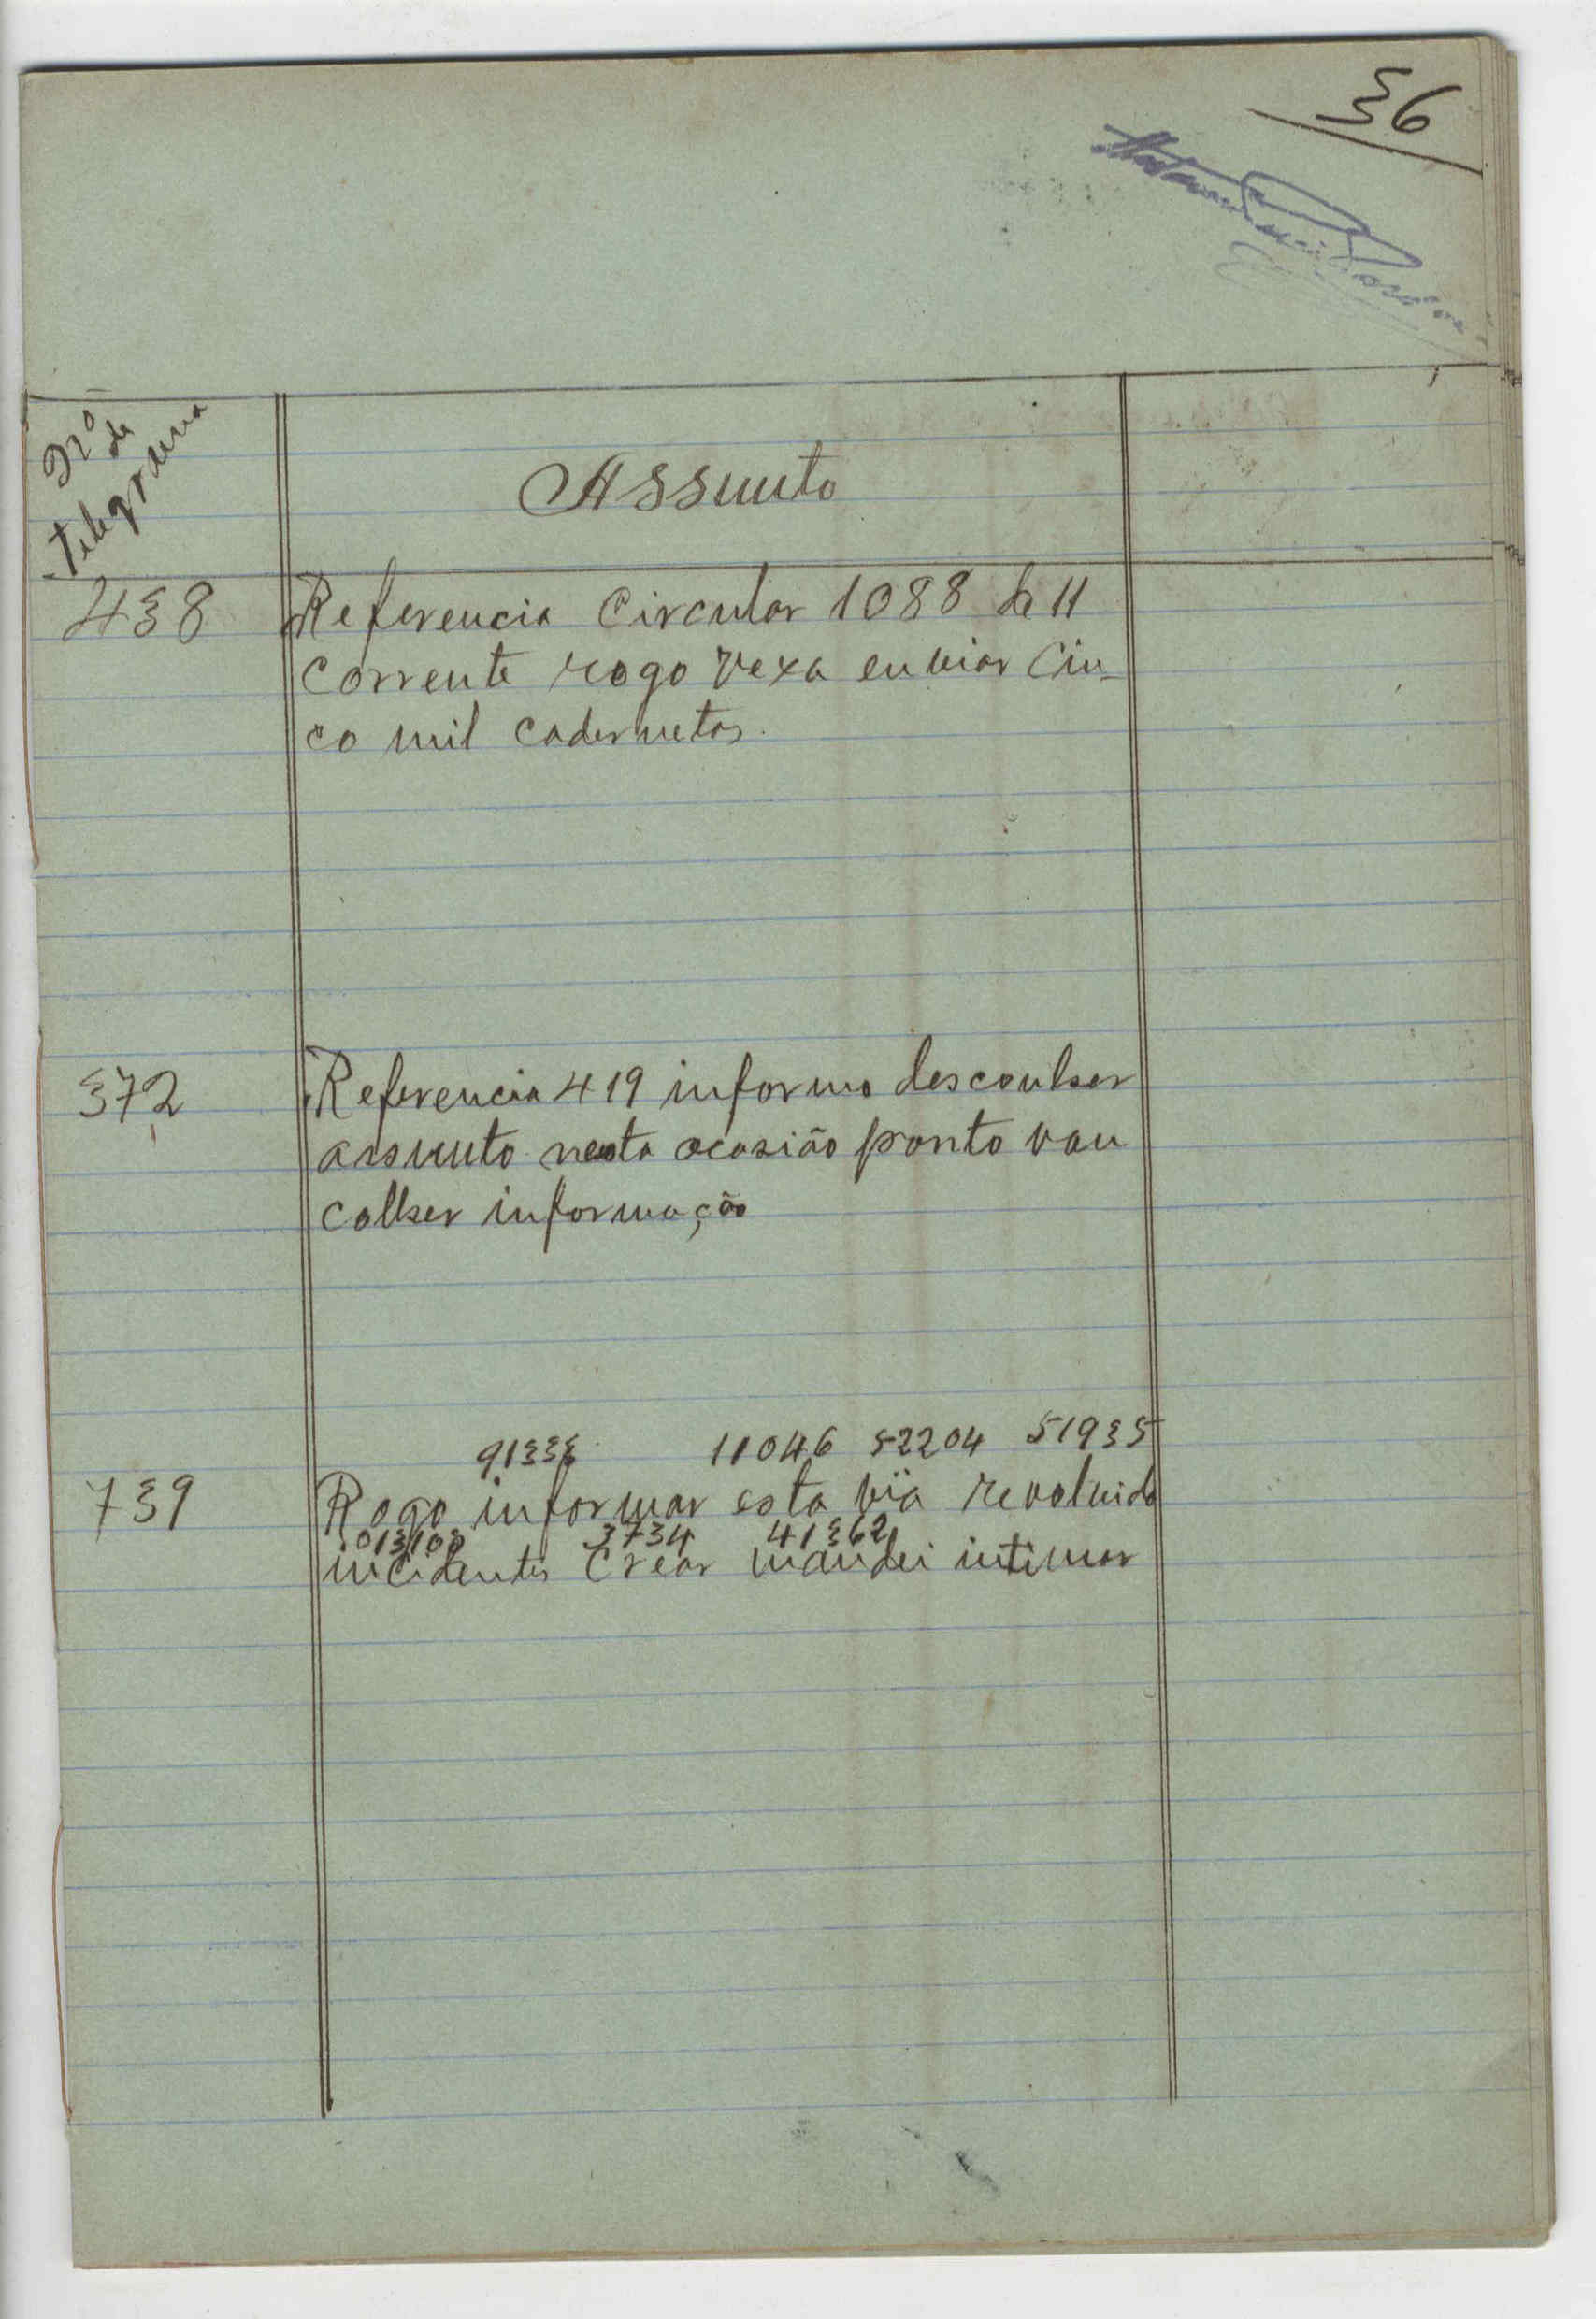 36
Nº de telegrama
Assunto
438 Referencia Circular 1088 de 11
corrente rogo Vexa enviar Cin-
co mil cadernetas.
372 Referencia 419 informo desconhser
assunto nesta ocasião ponto vou
colher informação
91333 11046 52204 51935
739 Rogo informar esta via revoluido
013103 3734 41362
incidentes Crear mandei intimar